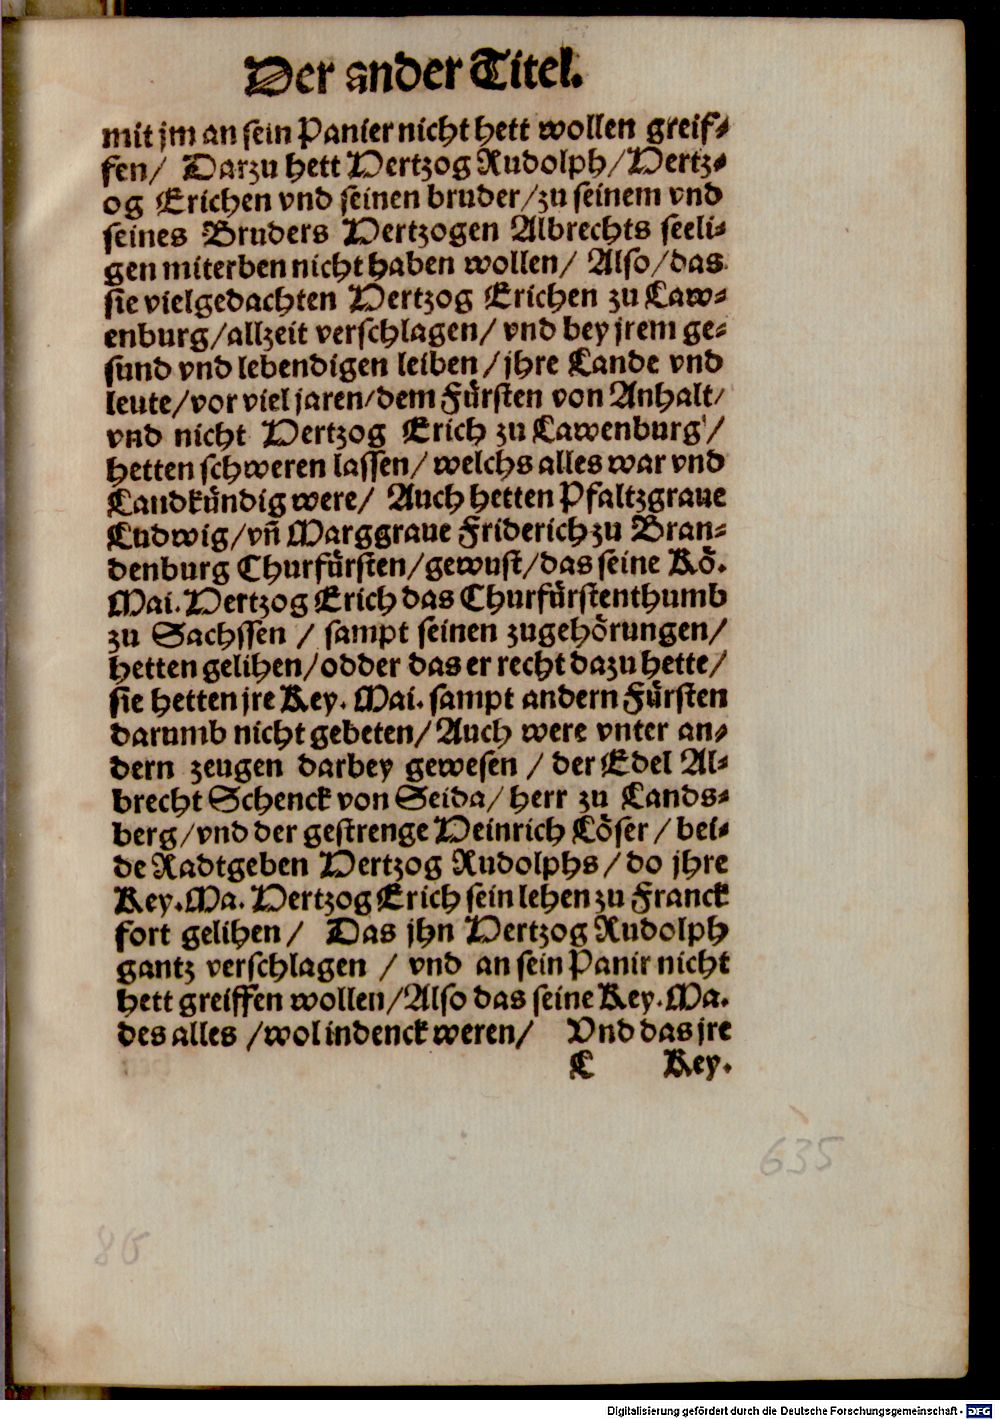 Der ander Titel.
mit jm an sein Panier nicht hett wollen greif⸗
fen/ Darzu hett Hertzog Rudolph/Hertz⸗
og Erichen vnd seinen bruder/zu seinem vnd
seines Bruders Hertzogen Albrechts seeli⸗
gen miterben nicht haben wollen/ Also/das
sie vielgedachten Hertzog Erichen zu Law⸗
enburg/allzeit verschlagen/vnd bey jrem ge⸗
sund vnd lebendigen leiben/jhre Lande vnd
leute/vor viel jaren/dem Fürsten von Anhalt/
vnd nicht Hertzog Erich zu Lawenburg/
hetten schweren lassen/welchs alles war vnd
Landkündig were/ Auch hetten Pfaltzgraue
Ludwig/vñ Marggraue Friderich zu Bran⸗
denburg Churfürsten/gewust/das seine Kö.
Mai. Hertzog Erich das Churfürstenthumb
zu Sachssen / sampt seinen zugehörungen/
hetten gelihen/odder das er recht dazu hette/
sie hetten jre Key. Mai. sampt andern Fürsten
darumb nicht gebeten/Auch were vnter an⸗
dern zeugen darbey gewesen / der Edel Al⸗
brecht Schenck von Seida/ herr zu Lands⸗
berg/vnd der gestrenge Heinrich Löser/ bei⸗
de Radtgeben Hertzog Rudolphs/do jhre
Key.Ma. Hertzog Erich sein lehen zu Franck
fort gelihen/ Das jhn Hertzog Rudolph
gantz verschlagen / vnd an sein Panir nicht
hett greiffen wollen/Also das seine Key.Ma.
des alles /wol indenck weren/ Vnd das jre
C Key.
635
86
Digitalisierung gefördert durch die Deutsche Forschungsgemeinschaft - DFG